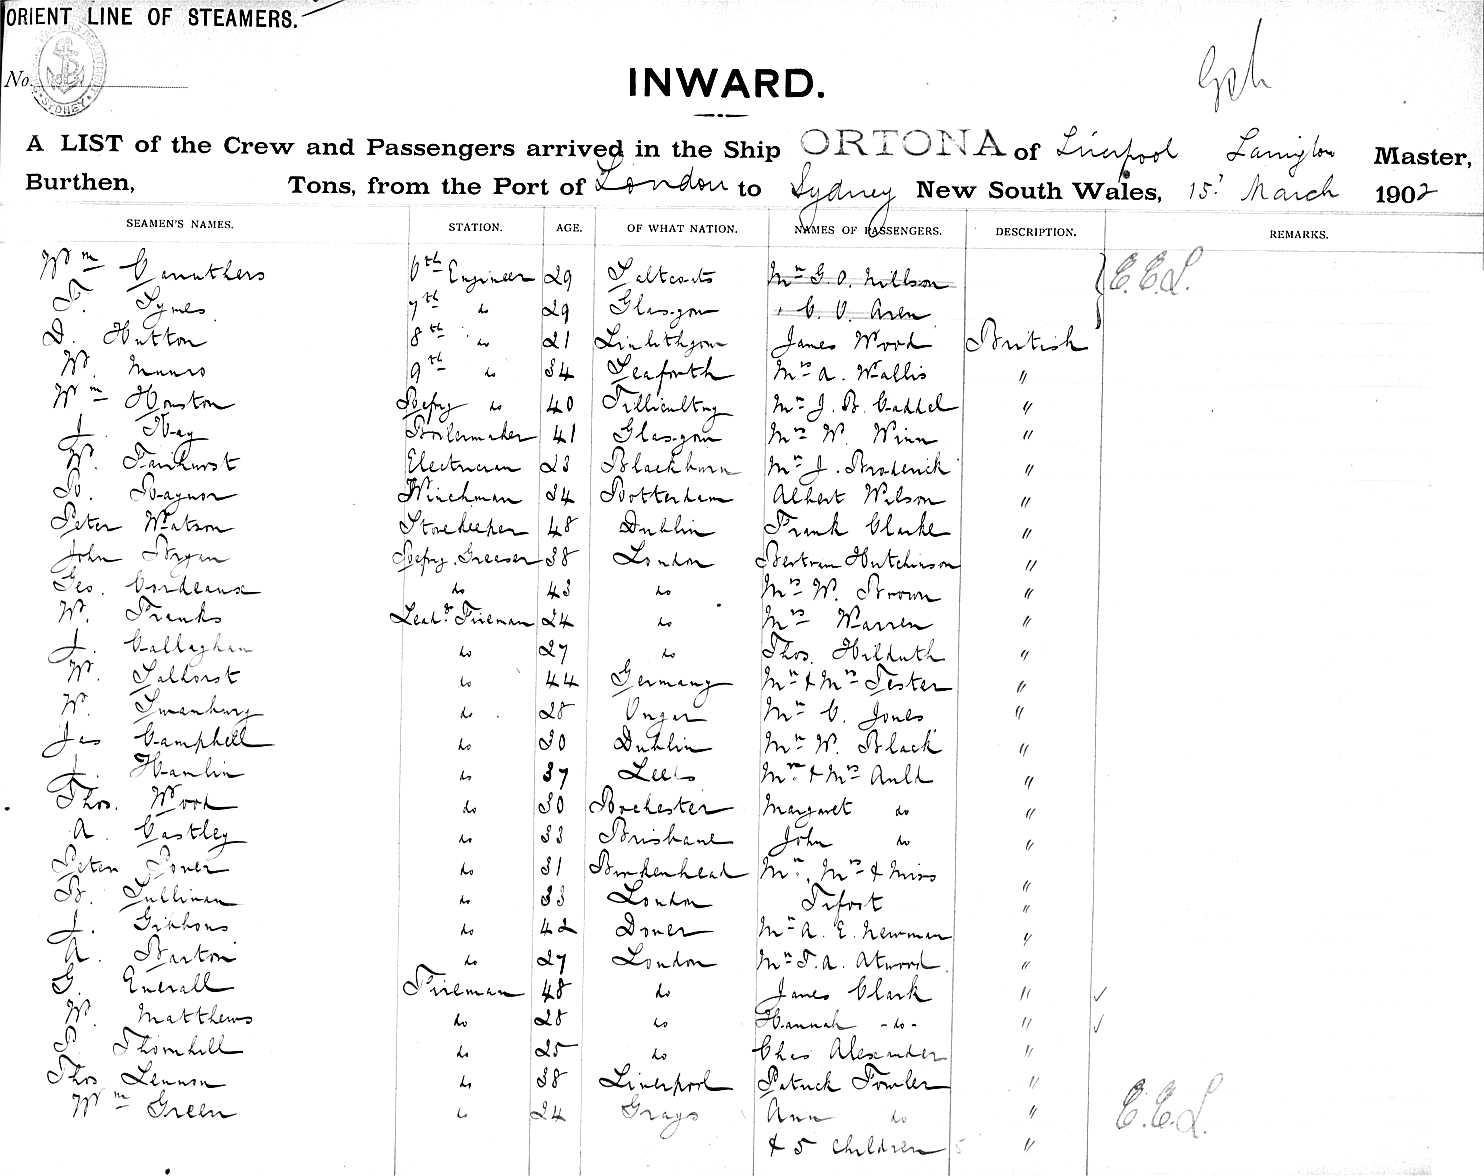 ORIENT LINE OF STEAMERS.
No.
SYDNEY
INWARD.
A LIST of the Crew and Passengers arrived in the Ship ORTONA of Liverpool Master,
Burthen, Tons, from the Port of London to Sydney New South Wales, 15' March 1902
SEAMEN'S NAMES. STATION. AGE. OF WHAT NATION. NAMES OF PASSENGERS. DESCRIPTION. REMARKS.
Wm Carruthers 6th Engineer 29 Saltcoats Mr G. O. Nillson E.E.L.
7th do 29 Glasgow
D. Hutton 8th do 21 Linlithgow James Wood British
W. Munro 9th do 34 Seaforth Mrs A. Wallis "
Wm Houston Refrg do 40 Tillicultry Mr J. B. Caddel "
J. Hay Boilermaker 41 Glasgow Mrs W. Winn "
W. Fairhurst Electrician 23 Blackburn Mr J. Broderick "
R. Raynor Winchman 34 Rotterdam Albert Wilson "
Peter Watson Storekeeper 48 Dublin Frank Clarke "
John Ryan Refrg. Greaser 38 London Bertram Hutchinson "
Geo. Cordeaux do 43 do Mrs W. Brown "
W. Franks Leadg Fireman 24 do Mrs Warren "
J. Callaghan do 27 do Thos. "
W. Salhorst do 44 Germany Mr & Mrs Tester "
W. do 28 Mr C. Jones "
Jas Campbell do 30 Dublin Mr W. Black "
J. Hamlin do 37 Leeds Mr & Mrs Auld "
Thos. Wood do 30 Rochester Margaret do "
A. Castley do 33 Brisbane John do "
Peter Power do 31 Birkenhead Mr, Mrs & Miss "
B. Sullivan do 33 London Trfort "
J. Gibbons do 42 Dover Mr A. E. Newman "
A. Barton do 27 London Mr T. A. Atwood "
G. Everall Fireman 48 do James Clark " ✓
W. Matthews do 28 do Hannah -do- " ✓
Thornhill do 25 do Chas Alexander "
Thos Lennon do 38 Liverpool Patrick Fowler "
Wm Green do 24 Grays Ann do " E.E.L.
& 5 children 5 "